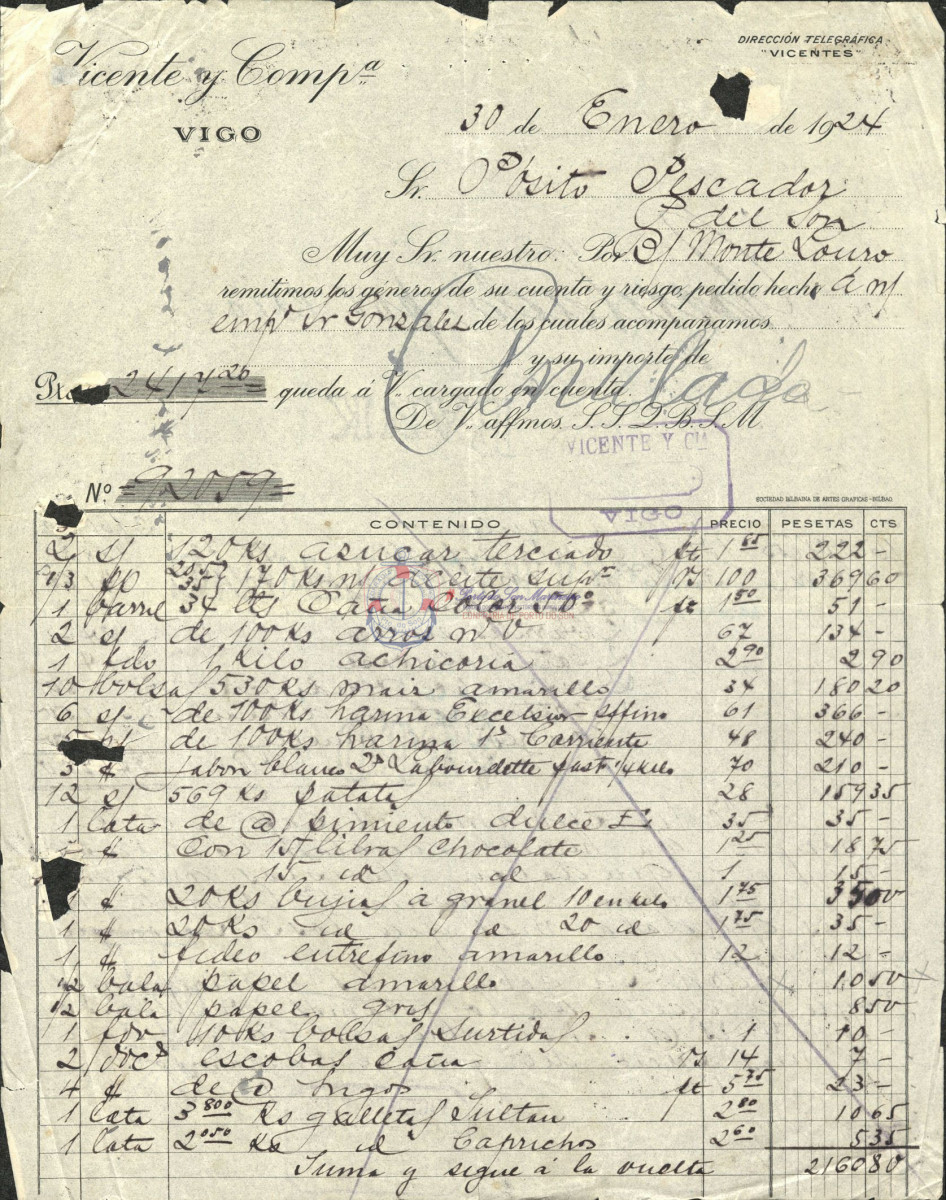 DIRECCIÓN TELEGRÁFICA
"VICENTES"
Vicente y Compª
VIGO
30 de Enero de 1924
Sr. Pósito Pescador
P. del Son
Muy Sr. nuestro: Por B/ Monte Louro
remitimos los géneros de su cuenta y riesgo, pedido hecho á n/
empº Sr Gonzalez de los cuales acompañamos
y su importe de
Ptas 2417,20 queda á V. cargado en cuenta.
Anulada
De V. affmos. S. S. Q. B. S. M.
VICENTE Y Cia
VIGO
Nº 92059
SOCIEDAD BILBAINA DE ARTES GRAFICAS - BILBAO
CONTENIDO PRECIO PESETAS CTS
2 s/ 120 Ks azucar terciado 1 85 222 -
1/3 pp 170 Ks n/ aceite supr 100 369 60
1 barril 34 lts Caña color 50º 1 50 51 -
COFRADIA DE PORTO DO SON
2 s/ de 100 Ks arros nº 0 67 134 -
1 fdo 1 kilo achicoria 2 90 2 90
10 bolsas 530 Ks mair amarillo 34 180 20
6 s/ de 100 Ks harina Excelsior 61 366 -
5 s/ de 100 Ks harina 1ª Corriente 48 240 -
3 # Jabon blanco 2ª Labourdette 70 210 -
12 s/ 569 Ks patatas 28 159 35
1 lata de @ pimiento dulce 35 35 -
# Con 15 libras chocolate 1 25 18 75
15 id id 1 15 -
# 20 Ks bujias á granel 10 en kilo 1 75 35 00
1 # 20 Ks id id 20 id 1 75 35 -
1 # fideo entrefino amarillo 12 12 -
1/2 bala papel amarillo 10 50
1/2 bala papel gris 8 50
1 fdo 10 Ks bolsas surtidas 1 10 -
2 docs escobas caña 14 7 -
4 # de @ higos 5 75 23 -
1 lata 3 800 Ks galletas Sultan 2 80 10 65
1 lata 2 050 Ks id Caprichos 2 60 5 35
Suma y sigue á la vuelta 2160 80